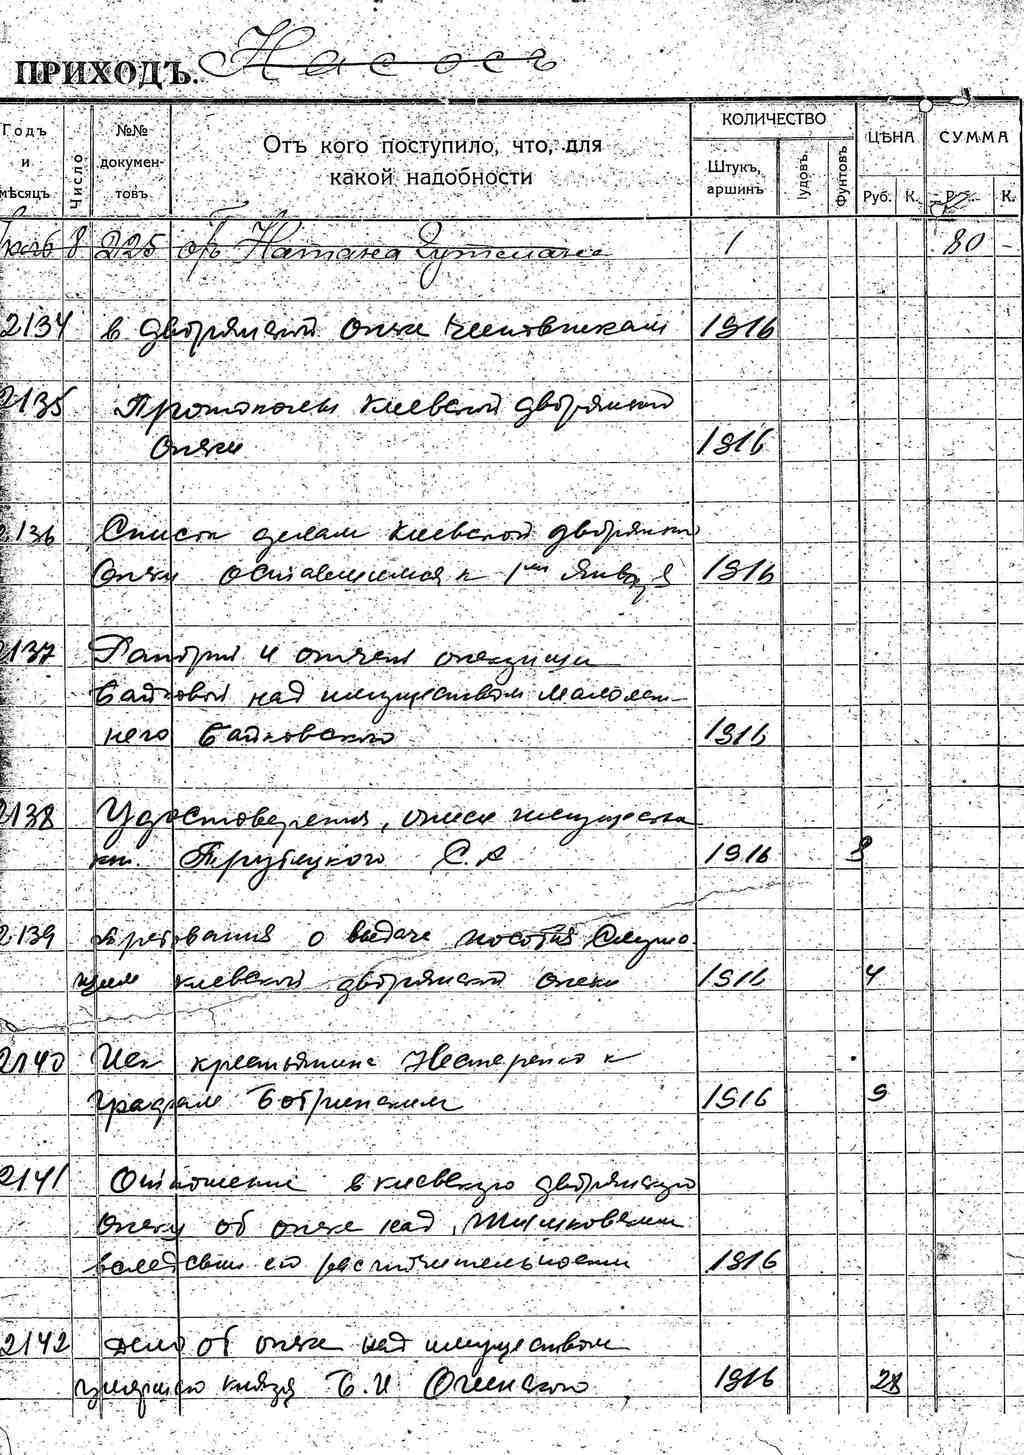 ПРИХОДЪ. Насосъ
Годъ и мѣсяцъ Число №№ докумен-товъ Отъ кого поступило, что, для какой надобности КОЛИЧЕСТВО Штукъ, аршинъ Пудовъ Фунтовъ ЦѢНА Руб. К. СУММА Р. К.
8 225 отъ Натана Гутмана 1 80 -
2134 в дворянской опеке чиновникам 1816
2135 Протоколы Киевской дворянской
Опеки 1816
2136 Список делам Киевской дворянской
Опеки оставшимся к 1му Января 1816
2137 Рапорты и отчеты опекунши
Байковой над имуществом малолет-
него Байковского 1816
2138 Удостоверения, описи имущества
кн. Трубецкого С. А 1816 8
2139 Требования о выдаче пособия Служа
щим Киевской дворянской опеки 1816 4
2140 Иск крестьянина Нестеренко к
Графам Бобринским 1816 9
2141 Отношение в киевскую дворянскую
Опеку об опеке над
вследствии его расточительности 1816
2142 Дело об опеке над имуществом
умершего князя Б. И Огинского 1816 28